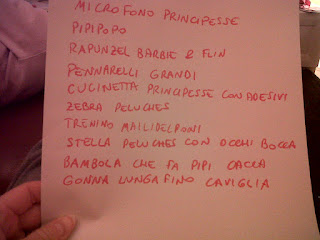 MICROFONO PRINCIPESSE
PIPIPOPO
RAPUNZEL BARBIE E FLIN
PENNARELLI GRANDI
CUCINETTA PRINCIPESSE CON ADESIVI
ZEBRA PELUCHES
TRENINO MAILIDELPONI
STELLA PELUCHES CON OCCHI BOCCA
BAMBOLA CHE FA PIPI CACCA
GONNA LUNGA FINO CAVIGLIA